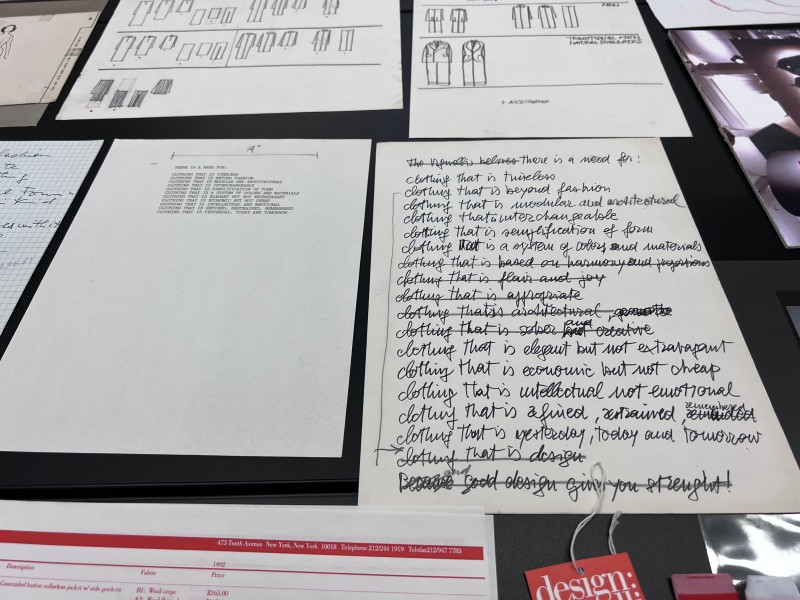 MEN
TRADITIONAL MEN
NATURAL SHOULDERS
+ ACCESSORIES
fashion
19"
THERE IS A NEED FOR:
CLOTHING THAT IS TIMELESS
CLOTHING THAT IS BEYOND FASHION
CLOTHING THAT IS MODULAR AND ARCHITECTURAL
CLOTHING THAT IS INTERCHANGEABLE
CLOTHING THAT IS SEMPLIFICATION OF FORM
CLOTHING THAT IS A SYSTEM OF COLORS AND MATERIALS
CLOTHING THAT IS ELEGANT BUT NOT EXTRAVAGANT
CLOTHING THAT IS ECONOMIC BUT NOT CHEAP
CLOTHING THAT IS INTELLECTUAL AND EMOTIONAL
CLOTHING THAT IS REFINED, RESTRAINED, REMEMBERED
CLOTHING THAT IS YESTERDAY, TODAY AND TOMORROW
the Vignellis believe there is a need for:
clothing that is timeless
clothing that is beyond fashion
clothing that is modular and architectured
clothing that is interchangeable
clothing that is semplification of form
clothing that is a system of colors and materials
clothing that is based on harmony and proportions
clothing that is flair and joy
clothing that is appropriate
clothing that is architectural,
clothing that is sober and creative
clothing that is elegant but not extravagant
clothing that is economic but not cheap
clothing that is intellectual not emotional
clothing that is refined, restrained, remembered
clothing that is yesterday, today and tomorrow
clothing that is design
Because good design give you strenght!
475 Tenth Avenue New York, New York 10018 Telephone 212/244 1919 Telefax 212/947 7783
1992
Description Fabric Price
Concealed button collarless jacket w/ side pockets B1: Wool crepe $265.00
design: